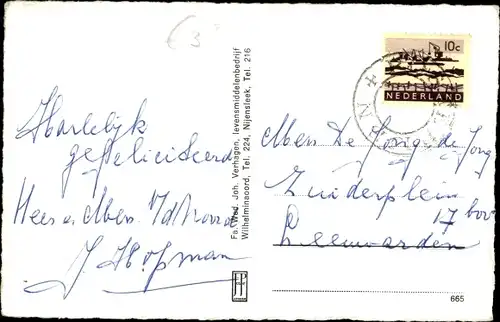 € 3
Hartelijk
gefeliciteerd
Heer en Mevr.
J. Hofman
Fa. Wed. Joh. Verhagen, levensmiddelenbedrijf
Wilhelminaoord, Tel. 224, Nijensleek, Tel. 216
10c
NEDERLAND
Mevr De Jong-de Jong
Zuiderplein
17
Leeuwarden
665